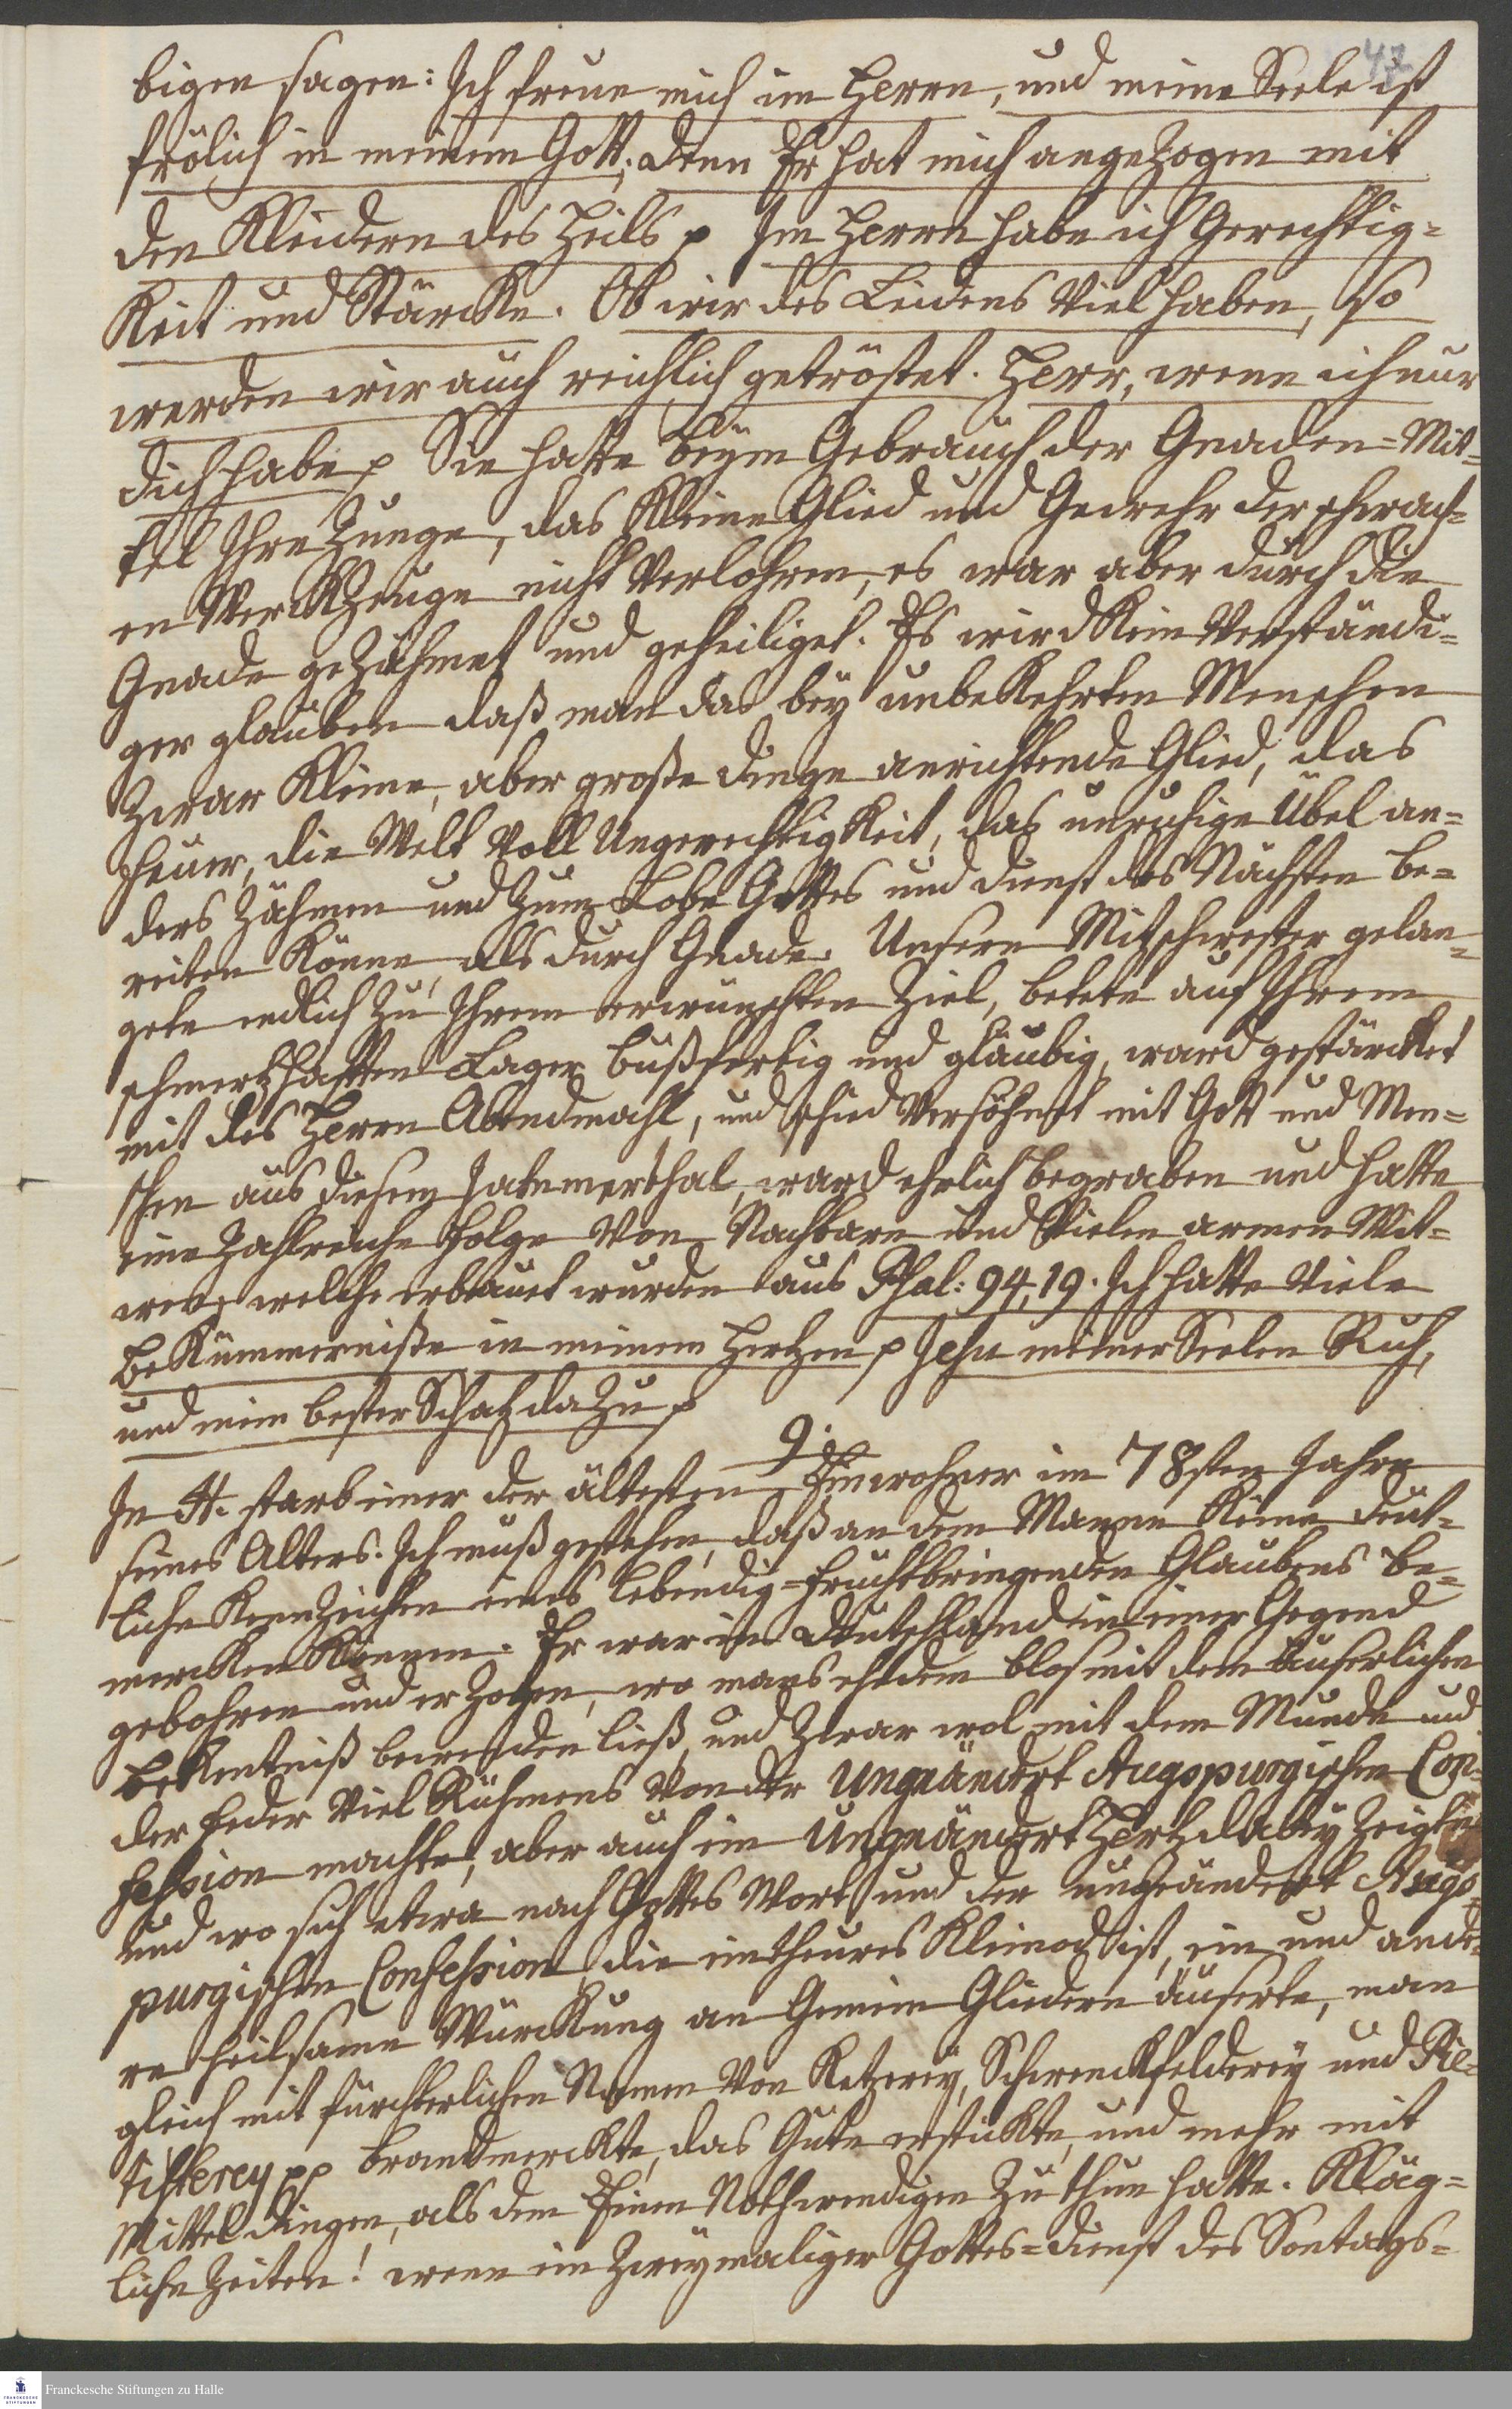 43
bigen sagen: Ich freue mich im Herrn, und meine Seele ist
frölich in meinem Gott; denn Er hat mich angezogen mit
den Kleidern des Heils p Im Herrn habe ich Gerechtig=
keit und Stärcke. Ob wir des Leidens viel haben, so
werden wir auch reichlich getröstet. Herr, wenn ich nur
dich habe p Sie hatte beym Gebrauch der Gnaden=Mit=
tel Ihre Zunge, das kleine Glied und Gewehr der schwach=
en Werckzeuge nicht verlohren, es war aber durch die
Gnade gezähmet und geheiliget. Es wird kein Verständi=
ger glauben daß man das bey unbekehrten Menschen
zwar kleine, aber große dinge anrichtende Glied, das
Feuer, die Welt voll Ungerechtigkeit, das unruhige Übel an=
ders zähmen und zum Lobe Gottes und dienst des Nächsten be=
reiten könne, als durch Gnade. Unsere Mitschwester gelan=
gete endlich zu Ihrem erwünschten Ziel, betete auf Ihrem
schmertzhafften Lager bußfertig und gläubig, ward gestärcket
mit des Herrn Abendmahl, und schied versöhnet mit Gott und Men=
schen aus diesem Jammerthal, ward ehrlich begraben und hatte
eine zahlreiche Folge von Nachbarn und vielen armen Wit=
wen, welche erbauet wurden aus Psal: 94,19. Ich hatte viele
Bekümmerniße in meinem Hertzen p Jesu meiner Seelen Ruh,
und mein bester Schatz dazu p
9.
In H. starb einer der ältesten Einwohner im 78sten Jahre
seines Alters. Ich muß gestehen, daß an dem Manne keine deut=
liche Kennzeichen eines lebendig=fruchtbringenden Glaubens be=
mercken können. Er war in Deutschland in einer Gegend
gebohren und erzogen, wo mans ehedem blos mit dem äuserlichen
Bekentniß bewenden ließ, und zwar wol mit dem Munde und
der Feder viel Rühmens von der Ungeändert Augspurgischen Con=
fession machte, aber auch ein Ungeändert Hertz dabey zeigte
und wo sich etwa nach Gottes Wort und der ungeändert Augs=
purgischen Confession, die ein theures Kleinod ist, ein und ande=
re heilsame Würckung an Gemein Gliedern äuserte, man
gleich mit fürchterlichen Namen von Ketzerey, Schwenckfelderey und Pie=
tisterey pp brandmerckte, das Gute erstickte, und mehr mit
Mittel dingen, als dem Einen Nothwendigen zu thun hatte. Kläg=
liche Zeiten! wenn ein zweymaliger Gottes=dienst des Sontags=
Franckesche Stiftungen zu Halle